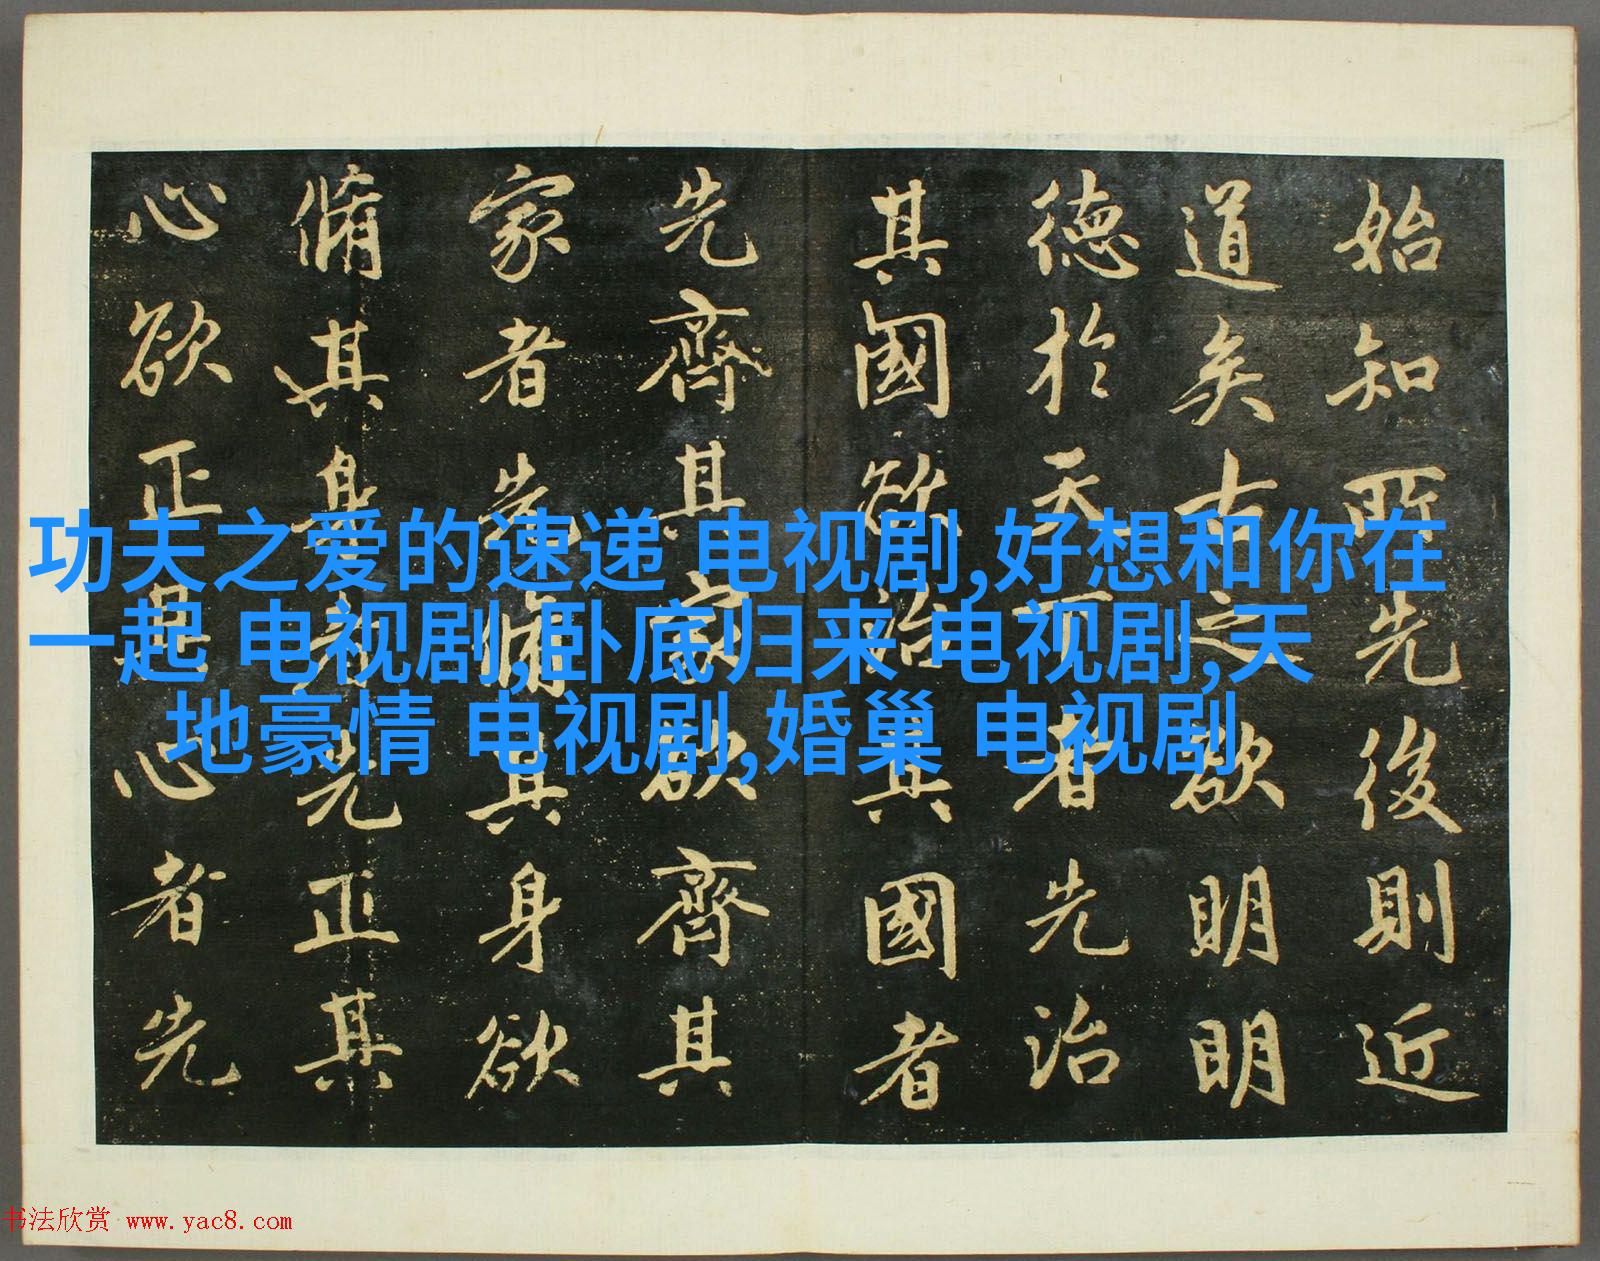 始知所先後則近
道矣古之欲明明
德於天下者先治
其國欲治其國者
先齊其家欲齊其
家者先脩其身欲
脩其身者先正其
心欲正其心者先
功夫之爱的速递 电视剧,好想和你在
一起 电视剧,卧底归来 电视剧,天
地豪情 电视剧,婚巢 电视剧
书法欣赏 www.yac8.com